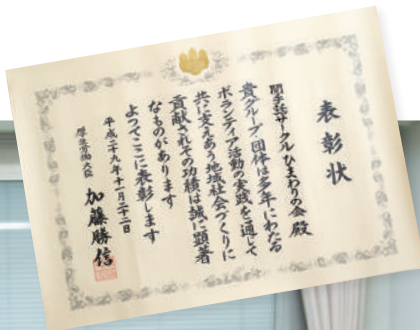 表彰状
関手話サークルひまわりの会 殿
貴グループ・団体は多年にわたる
ボランティア活動の実践を通じて
共に支えあう地域社会づくりに
貢献されその功績は誠に顕著
なものがあります
よってここに表彰します
平成二十九年十一月二十二日
厚生労働大臣 加藤勝信